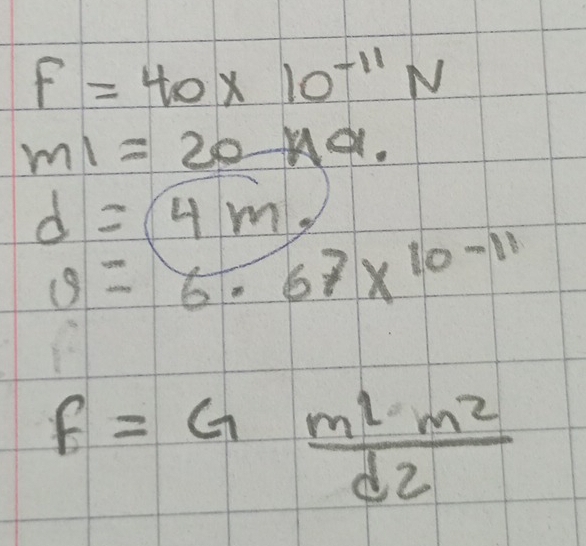 F = 40 x 10-11 N
m1 = 20 kg.
d = 4 m.
g = 6.67 x 10-11
F = G m1 m2
d2